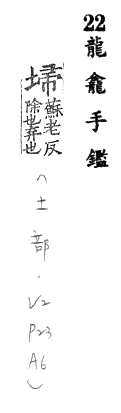 22龍龕手鑑
埽蘇老反除也弃也
(土部.V2P23A6)